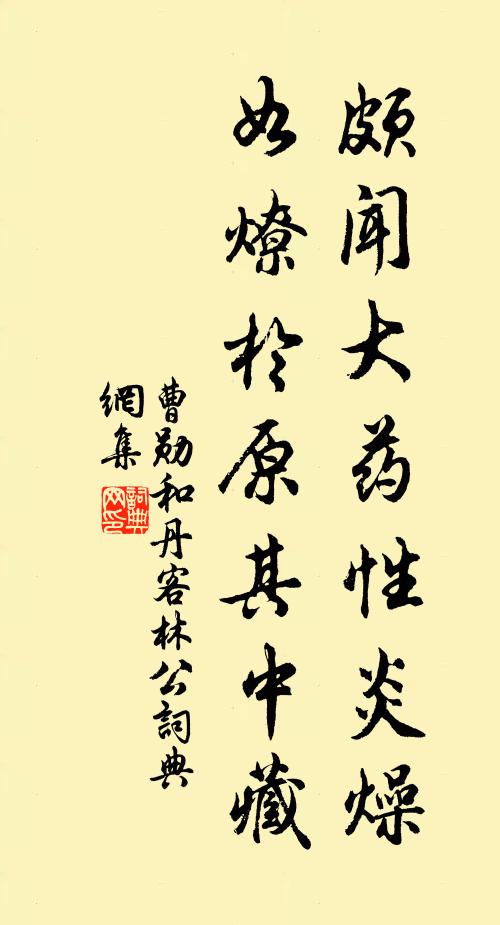 颇闻大药性炎燥
如燎於原其中藏
曹勋和丹客林公詞典
網集
詞典網印